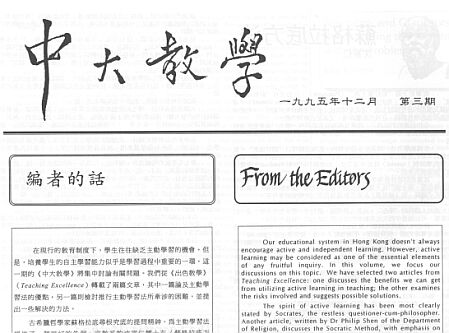 中大教學
一九九五年十二月 第三期
編者的話
From the Editors
在現行的教育制度下，學生往往缺乏主動學習的機會，但
是，培養學生的自主學習能力似乎是學習過程中重要的一環。這
一期的《中大教學》將集中討論有關問題。我們從《出色教學》
(Teaching Excellence) 轉載了兩篇文章，其中一篇論及主動學
習法的優點，另一篇則檢討推行主動學習法所牽涉的困難，並提
出一些解決的方法。
古希臘哲學家蘇格拉底尋根究底的提問精神，為主動學習法
Our educational system in Hong Kong doesn't always
encourage active and independent learning. However, active
learning may be considered as one of the essential elements
of any fruitful inquiry. In this volume, we focus our
discussions on this topic. We have selected two articles from
Teaching Excellence: one discusses the benefits we can get
from utilizing active learning in teaching; the other examines
the risks involved and suggests possible solutions.
The spirit of active learning has been most clearly
stated by Socrates, the restless questioner-cum-philosopher.
Another article, written by Dr Philip Shen of the Department
of Religion, discusses the Socratic Method, with emphasis on